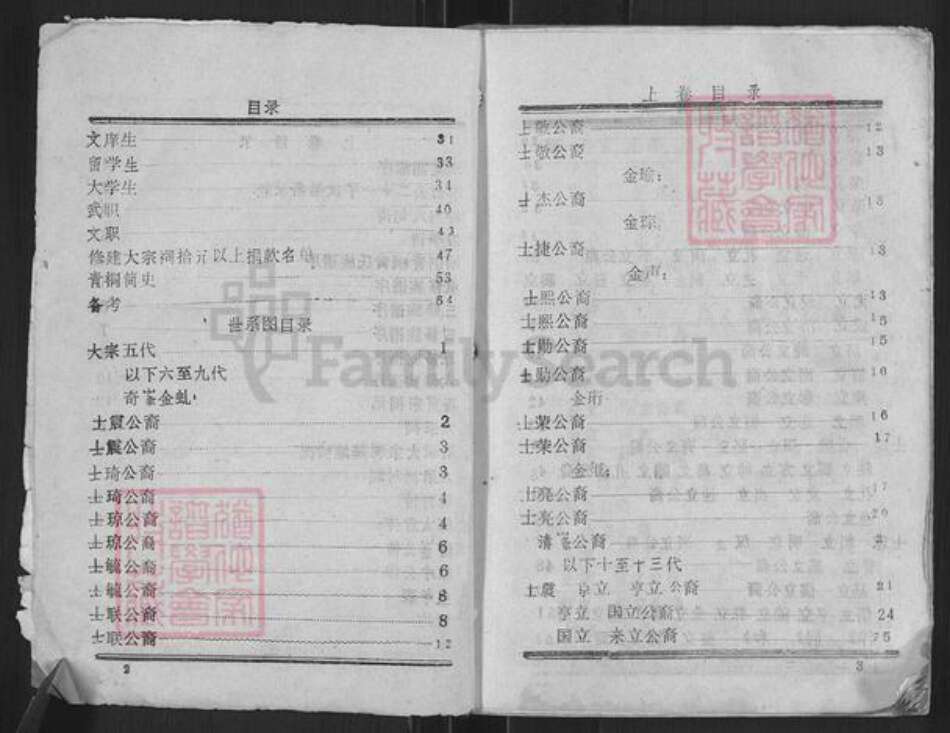 目录
文庠生 31
留学生 33
大学生 34
武职 40
文职 43
修建大宗祠拾元以上捐款名单 47
青桐简史 53
备考 64
世系图目录
大宗五代 1
以下六至九代
奇峯金虬
士震公裔 2
士震公裔 3
士琦公裔 3
士琦公裔 4
士琼公裔 4
士琼公裔 6
士毓公裔 6
士毓公裔 8
士联公裔 8
士联公裔 12
2
上卷目录
士敬公裔 12
士敬公裔 13
金瑜：
士杰公裔 13
金琮：
士捷公裔 13
金声：
士熙公裔 13
士熙公裔 15
士勋公裔 15
士勋公裔 16
金珩
士荣公裔 16
士荣公裔 17
金
士亮公裔 17
士亮公裔 20
清峯公裔
以下十至十三代
士震 京立 亨立公裔 21
亨立 国立公裔 24
国立 来立公裔 25
3
FamilySearch